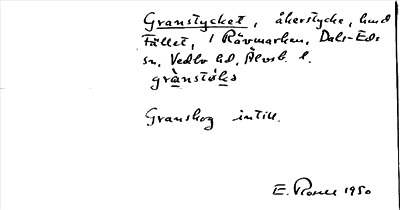 Granstycket, åkerstycke, hmd
Fället, 1 Rävmarken, Dals-Eds
sn, Vedbo hd, Älvsb. l.
grànstøks
Granskog intill.
E. Rosell 1950